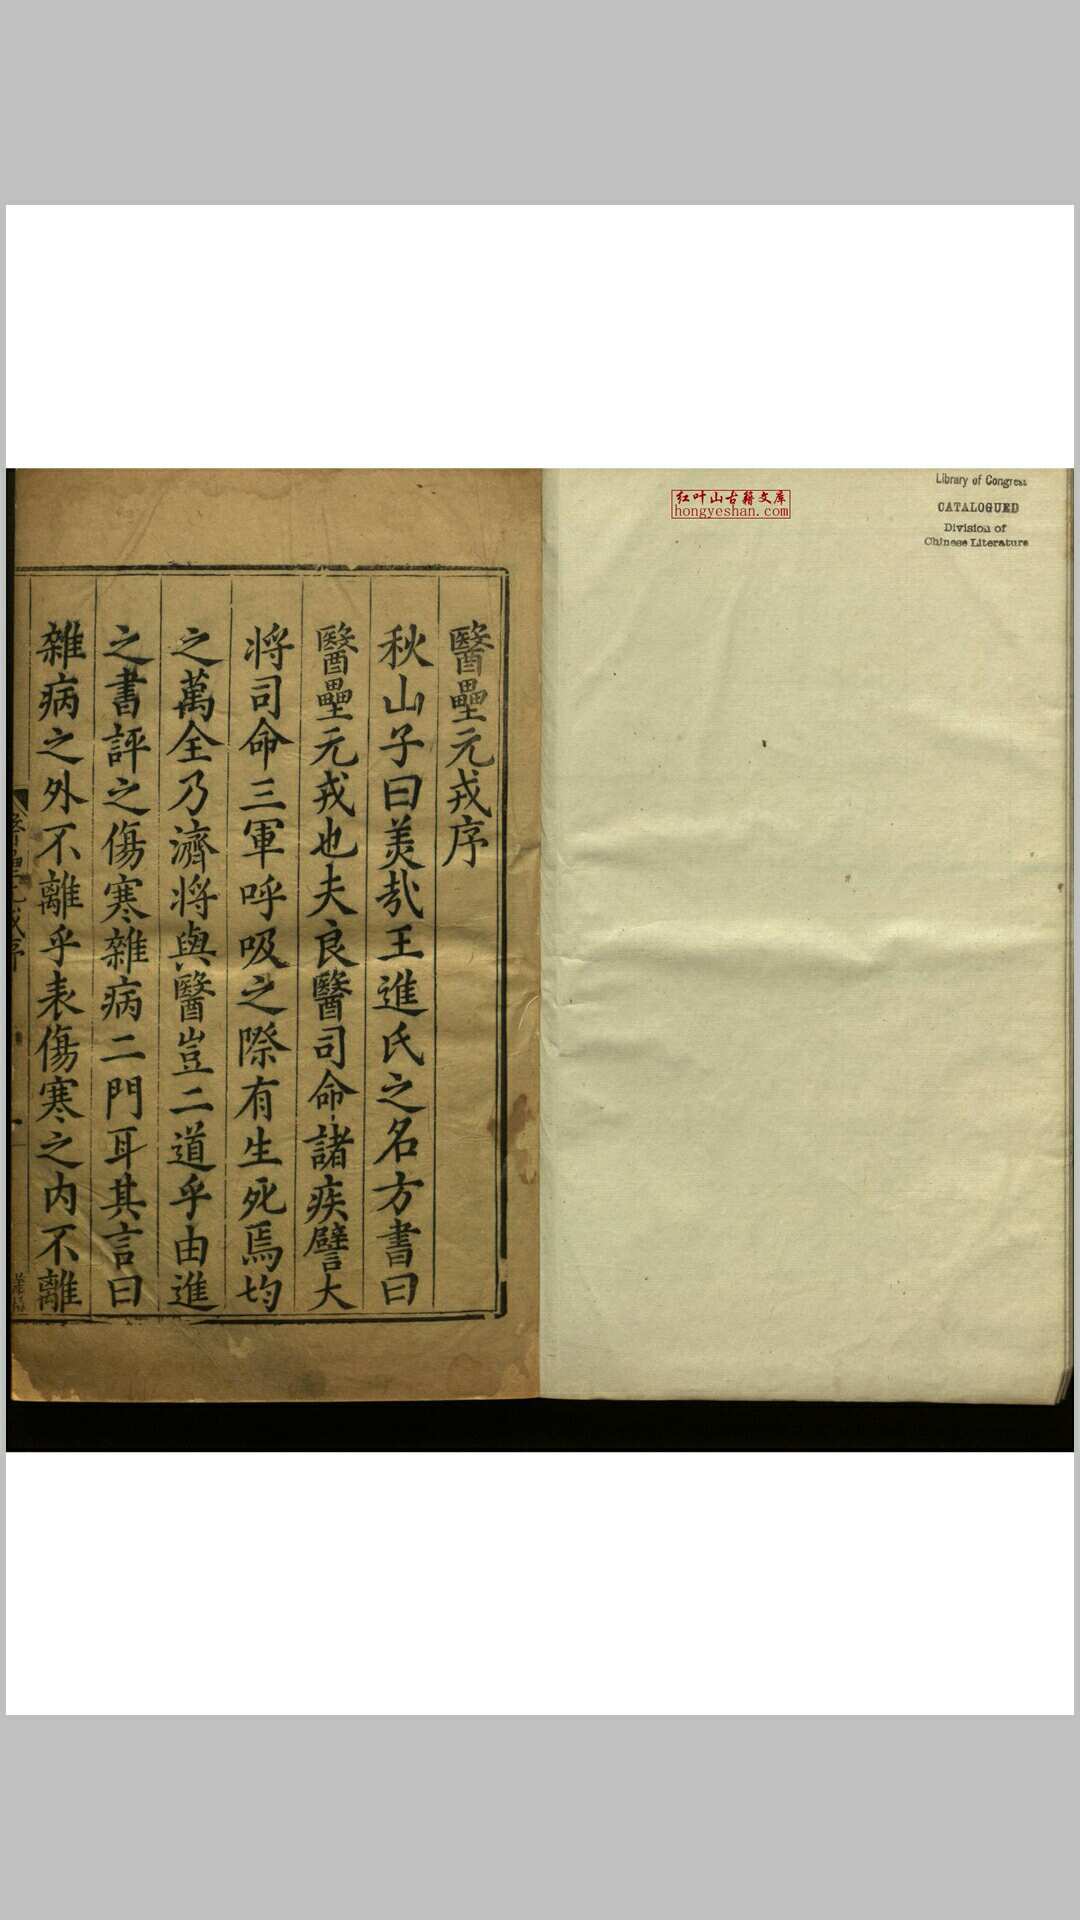 红叶山古籍文库
hongyeshan.com
Library of Congress
CATALOGUED
Division of
Chinese Literature
醫壘元戎序
秋山子曰美哉王進氏之名方書曰
醫壘元戎也夫良醫司命諸疾譬大
將司命三軍呼吸之際有生死焉均
之萬全乃濟將與醫豈二道乎由進
之書評之傷寒雜病二門耳其言曰
雜病之外不離乎表傷寒之内不離